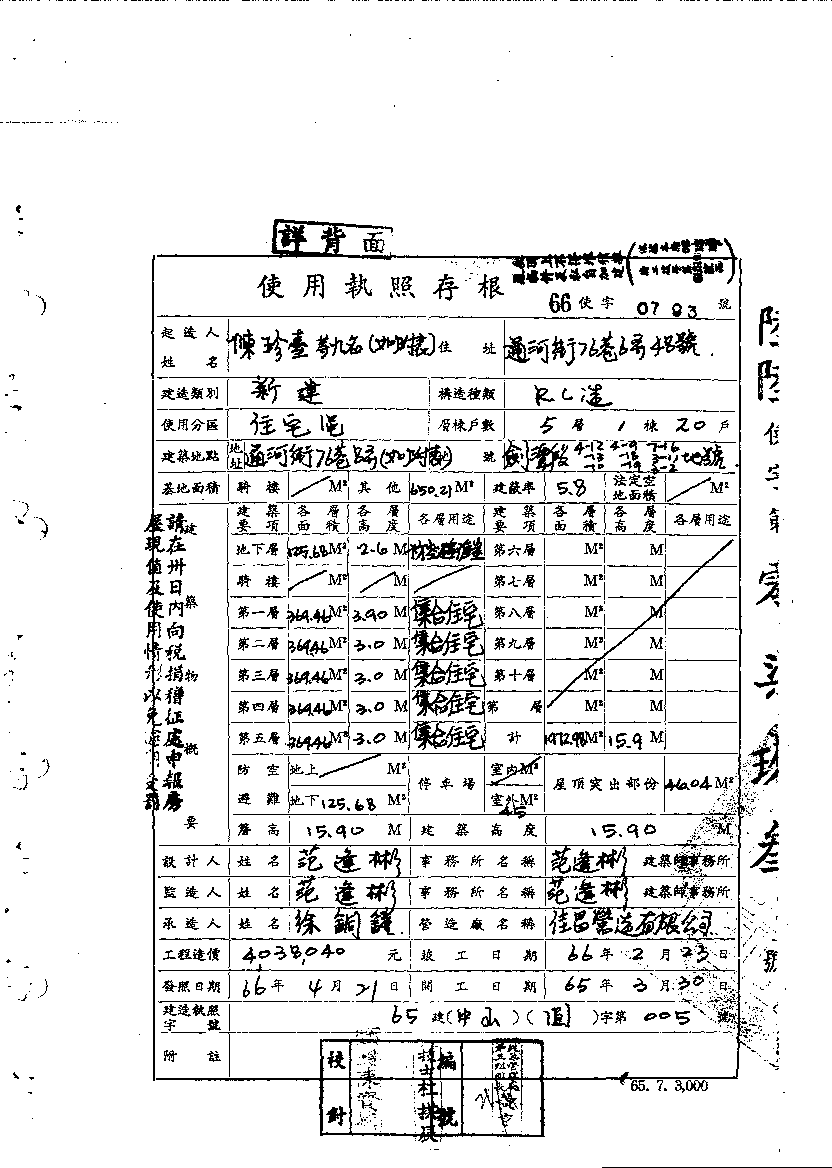 詳背面
使用執照存根
66使字0793號
起造人姓名 陳珍臺等九名(如附表) 住址 通河街76巷6弄48號
建造類別 新建 構造種類 RC造
使用分區 住宅區 層棟戶數 5層1棟20戶
建築地點 地址 通河街76巷8弄(如附表) 號 劍潭段 地號
基地面積 騎樓 M² 其他 650.21M² 建蔽率 5.8 法定空地面積 M²
建築要項 各層面積 各層高度 各層用途 建築要項 各層面積 各層高度 各層用途
地下層 125.68M² 2.6M 第六層 M² M
騎樓 M² M 第七層 M² M
第一層 369.46M² 3.90M 集合住宅 第八層 M² M
第二層 369.46M² 3.0M 集合住宅 第九層 M² M
第三層 369.46M² 3.0M 集合住宅 第十層 M² M
第四層 369.46M² 3.0M 集合住宅 第 層 M² M
第五層 369.46M² 3.0M 集合住宅 計 1972.98M² 15.9M
防空避難 地上 M² 地下125.68M² 停車場 室內M² 室外M² 45 屋頂突出部份 46.04M²
簷高 15.90M 建築高度 15.90M
建築物概要
設計人 姓名 范進彬 事務所名稱 范進彬 建築師事務所
監造人 姓名 范進彬 事務所名稱 范進彬 建築師事務所
承造人 姓名 徐銅鐘 營造廠名稱 佳昌營造有限公司
工程造價 4,038,040元 竣工日期 66年2月23日
發照日期 66年4月21日 開工日期 65年3月30日
建造執照字號 65建(中山)(道)字第005號
附註
請在卅日內向稅捐稽征處申報房
屋現值及使用情形以免
使字第零柒玖叁號
校對
編號
65.7.3,000